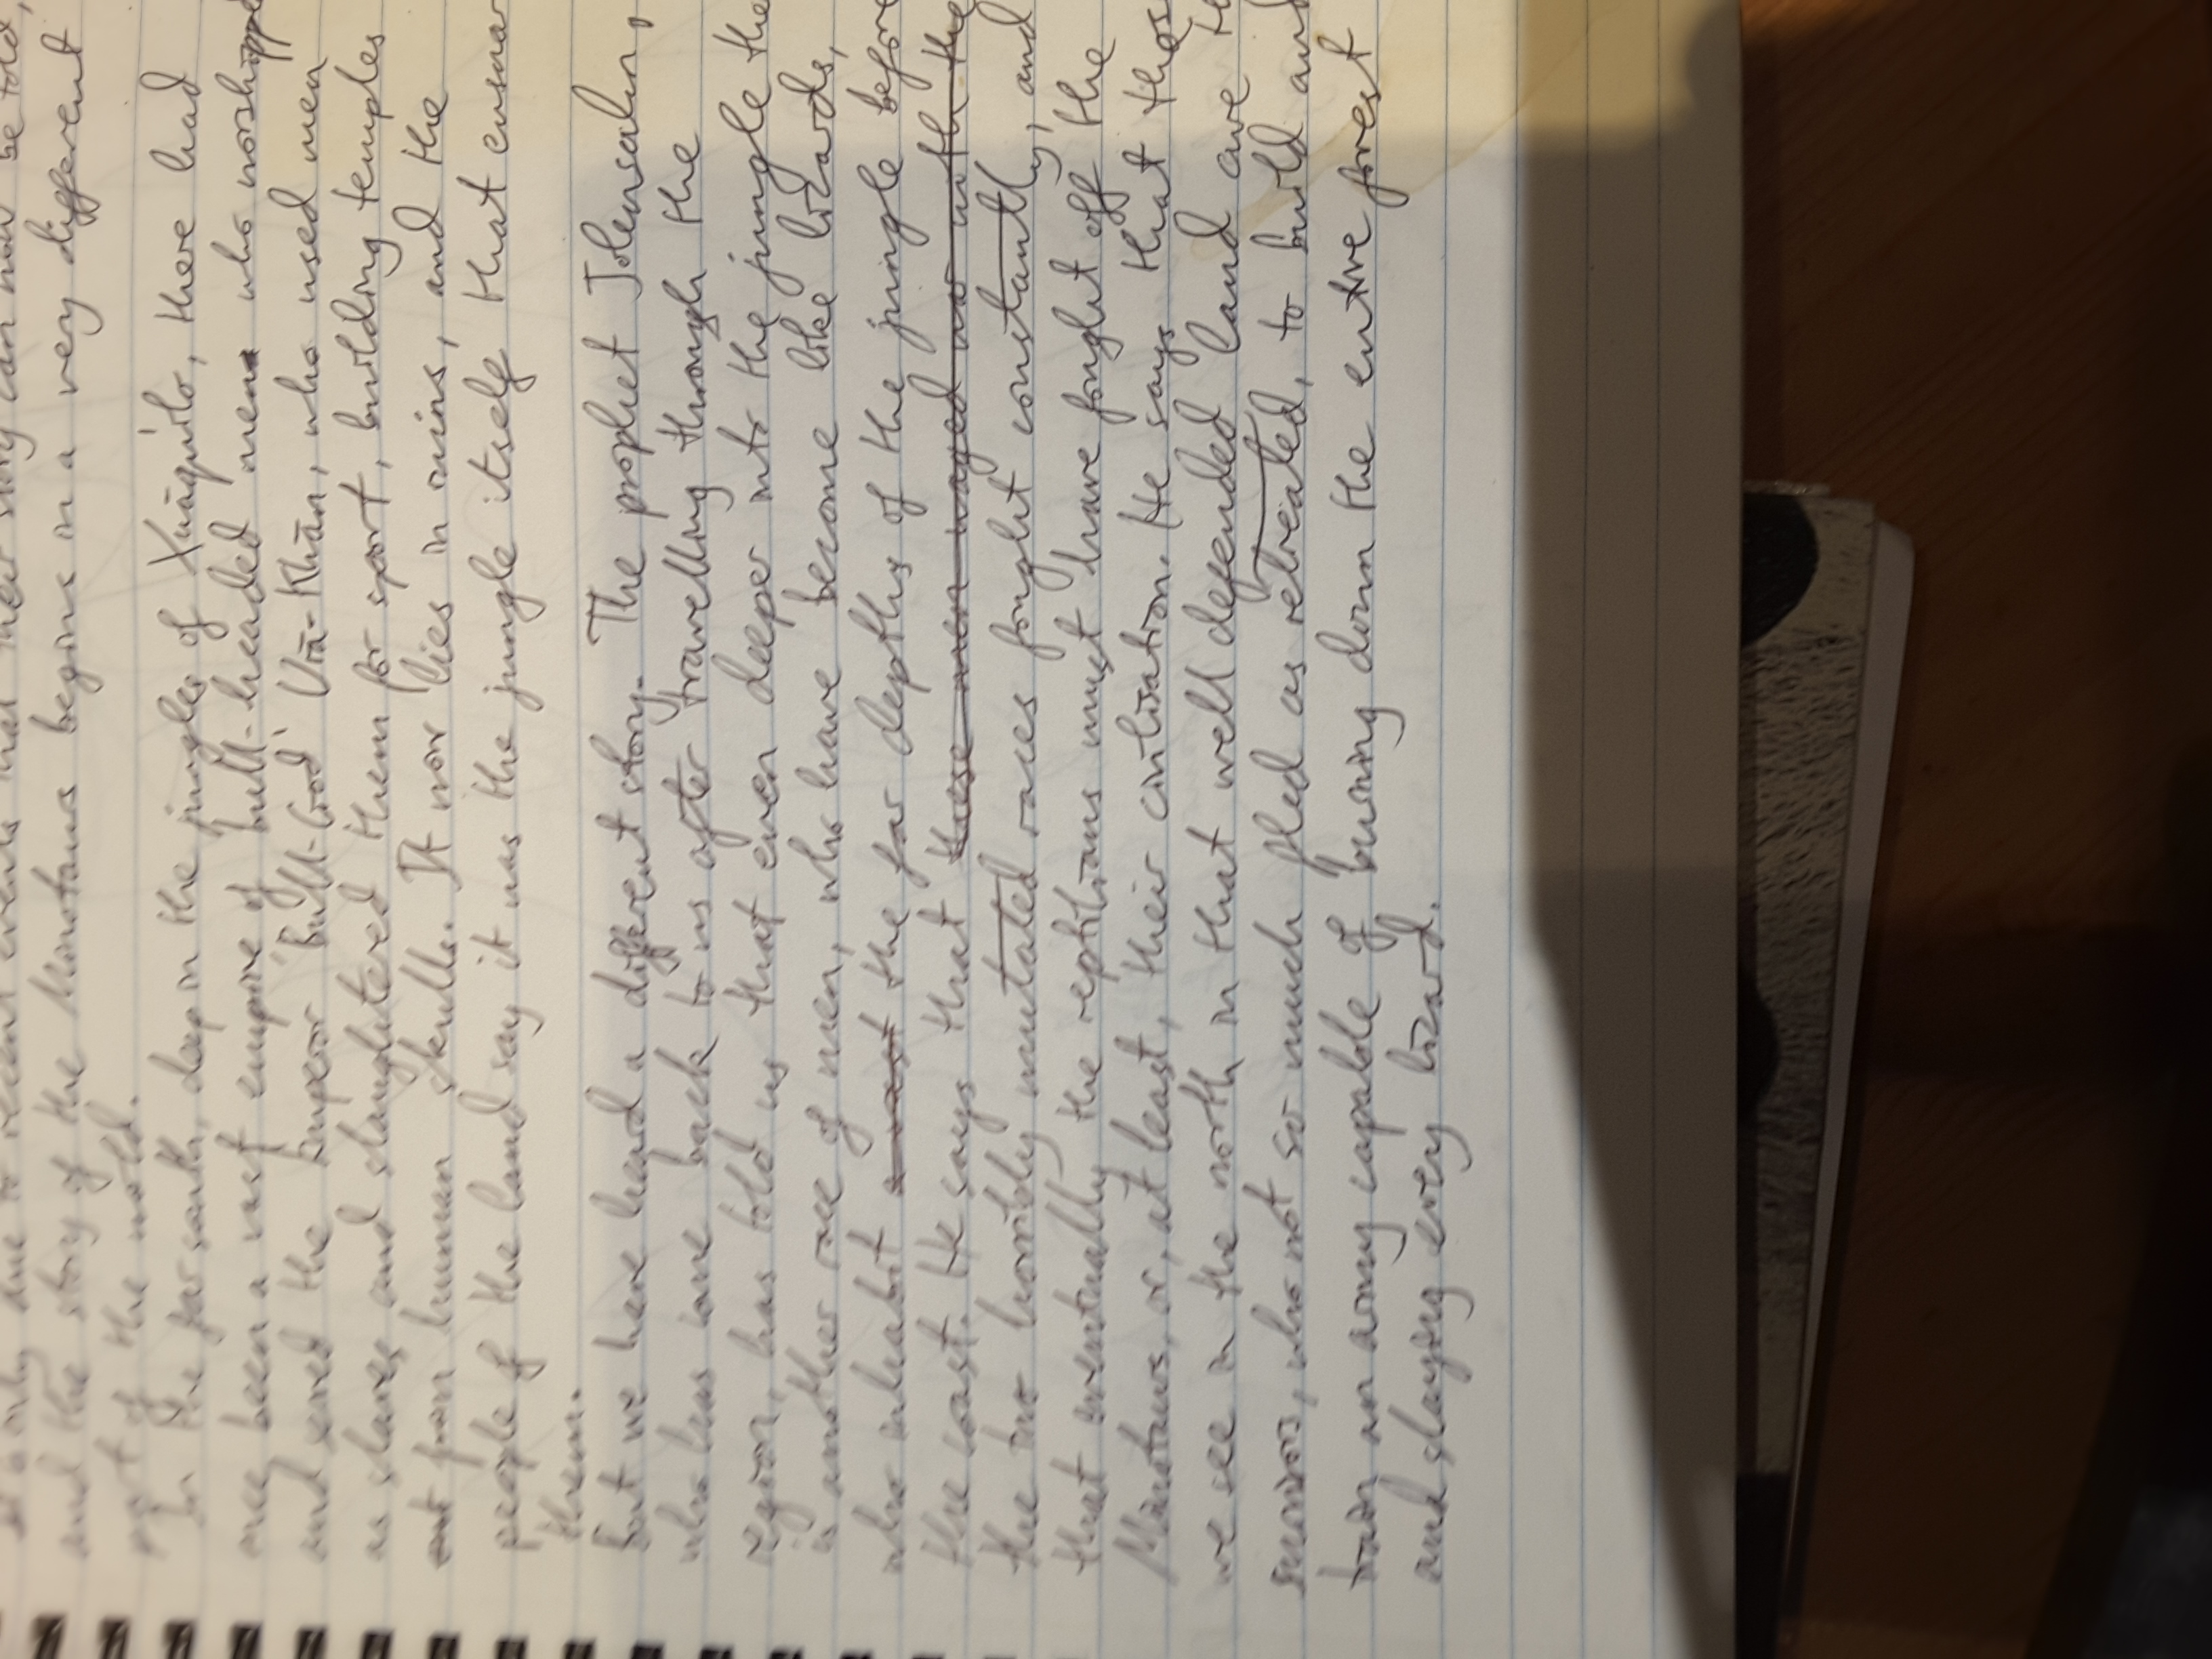 is only due to recent events that their story can now be told,
and the story of the Minotaurs begins in a very different
part of the world.
In the far south, deep in the jungles of Xuāquílo, there had
once been a vast empire of bull-headed men who worshipped
and served the Emperor 'Bull-God' Uiā-Khān, who used men
as slaves and slaughtered them for sport, building temples
out from human skulls. It now lies in ruins, and the
people of the land say it was the jungle itself that ensnar
them.
But we have heard a different story. The prophet Jolensahn,
who has come back to us after travelling through the
region, has told us that even deeper into the jungle the
is another race of men, who have become like lizards,
who inhabit a vast the far depths of the jungle before
the coast. He says that these men waged war with the
the two horribly mutated races fought constantly, and
that eventually the reptilians must have fought off the
Minotaurs, or, at least, their civilisation. He says that thos
we see in the north in that well defended land are
survivors, who not so much fled as retreated, to build and
train an army capable of burning down the entire forest
and slaying every lizard.